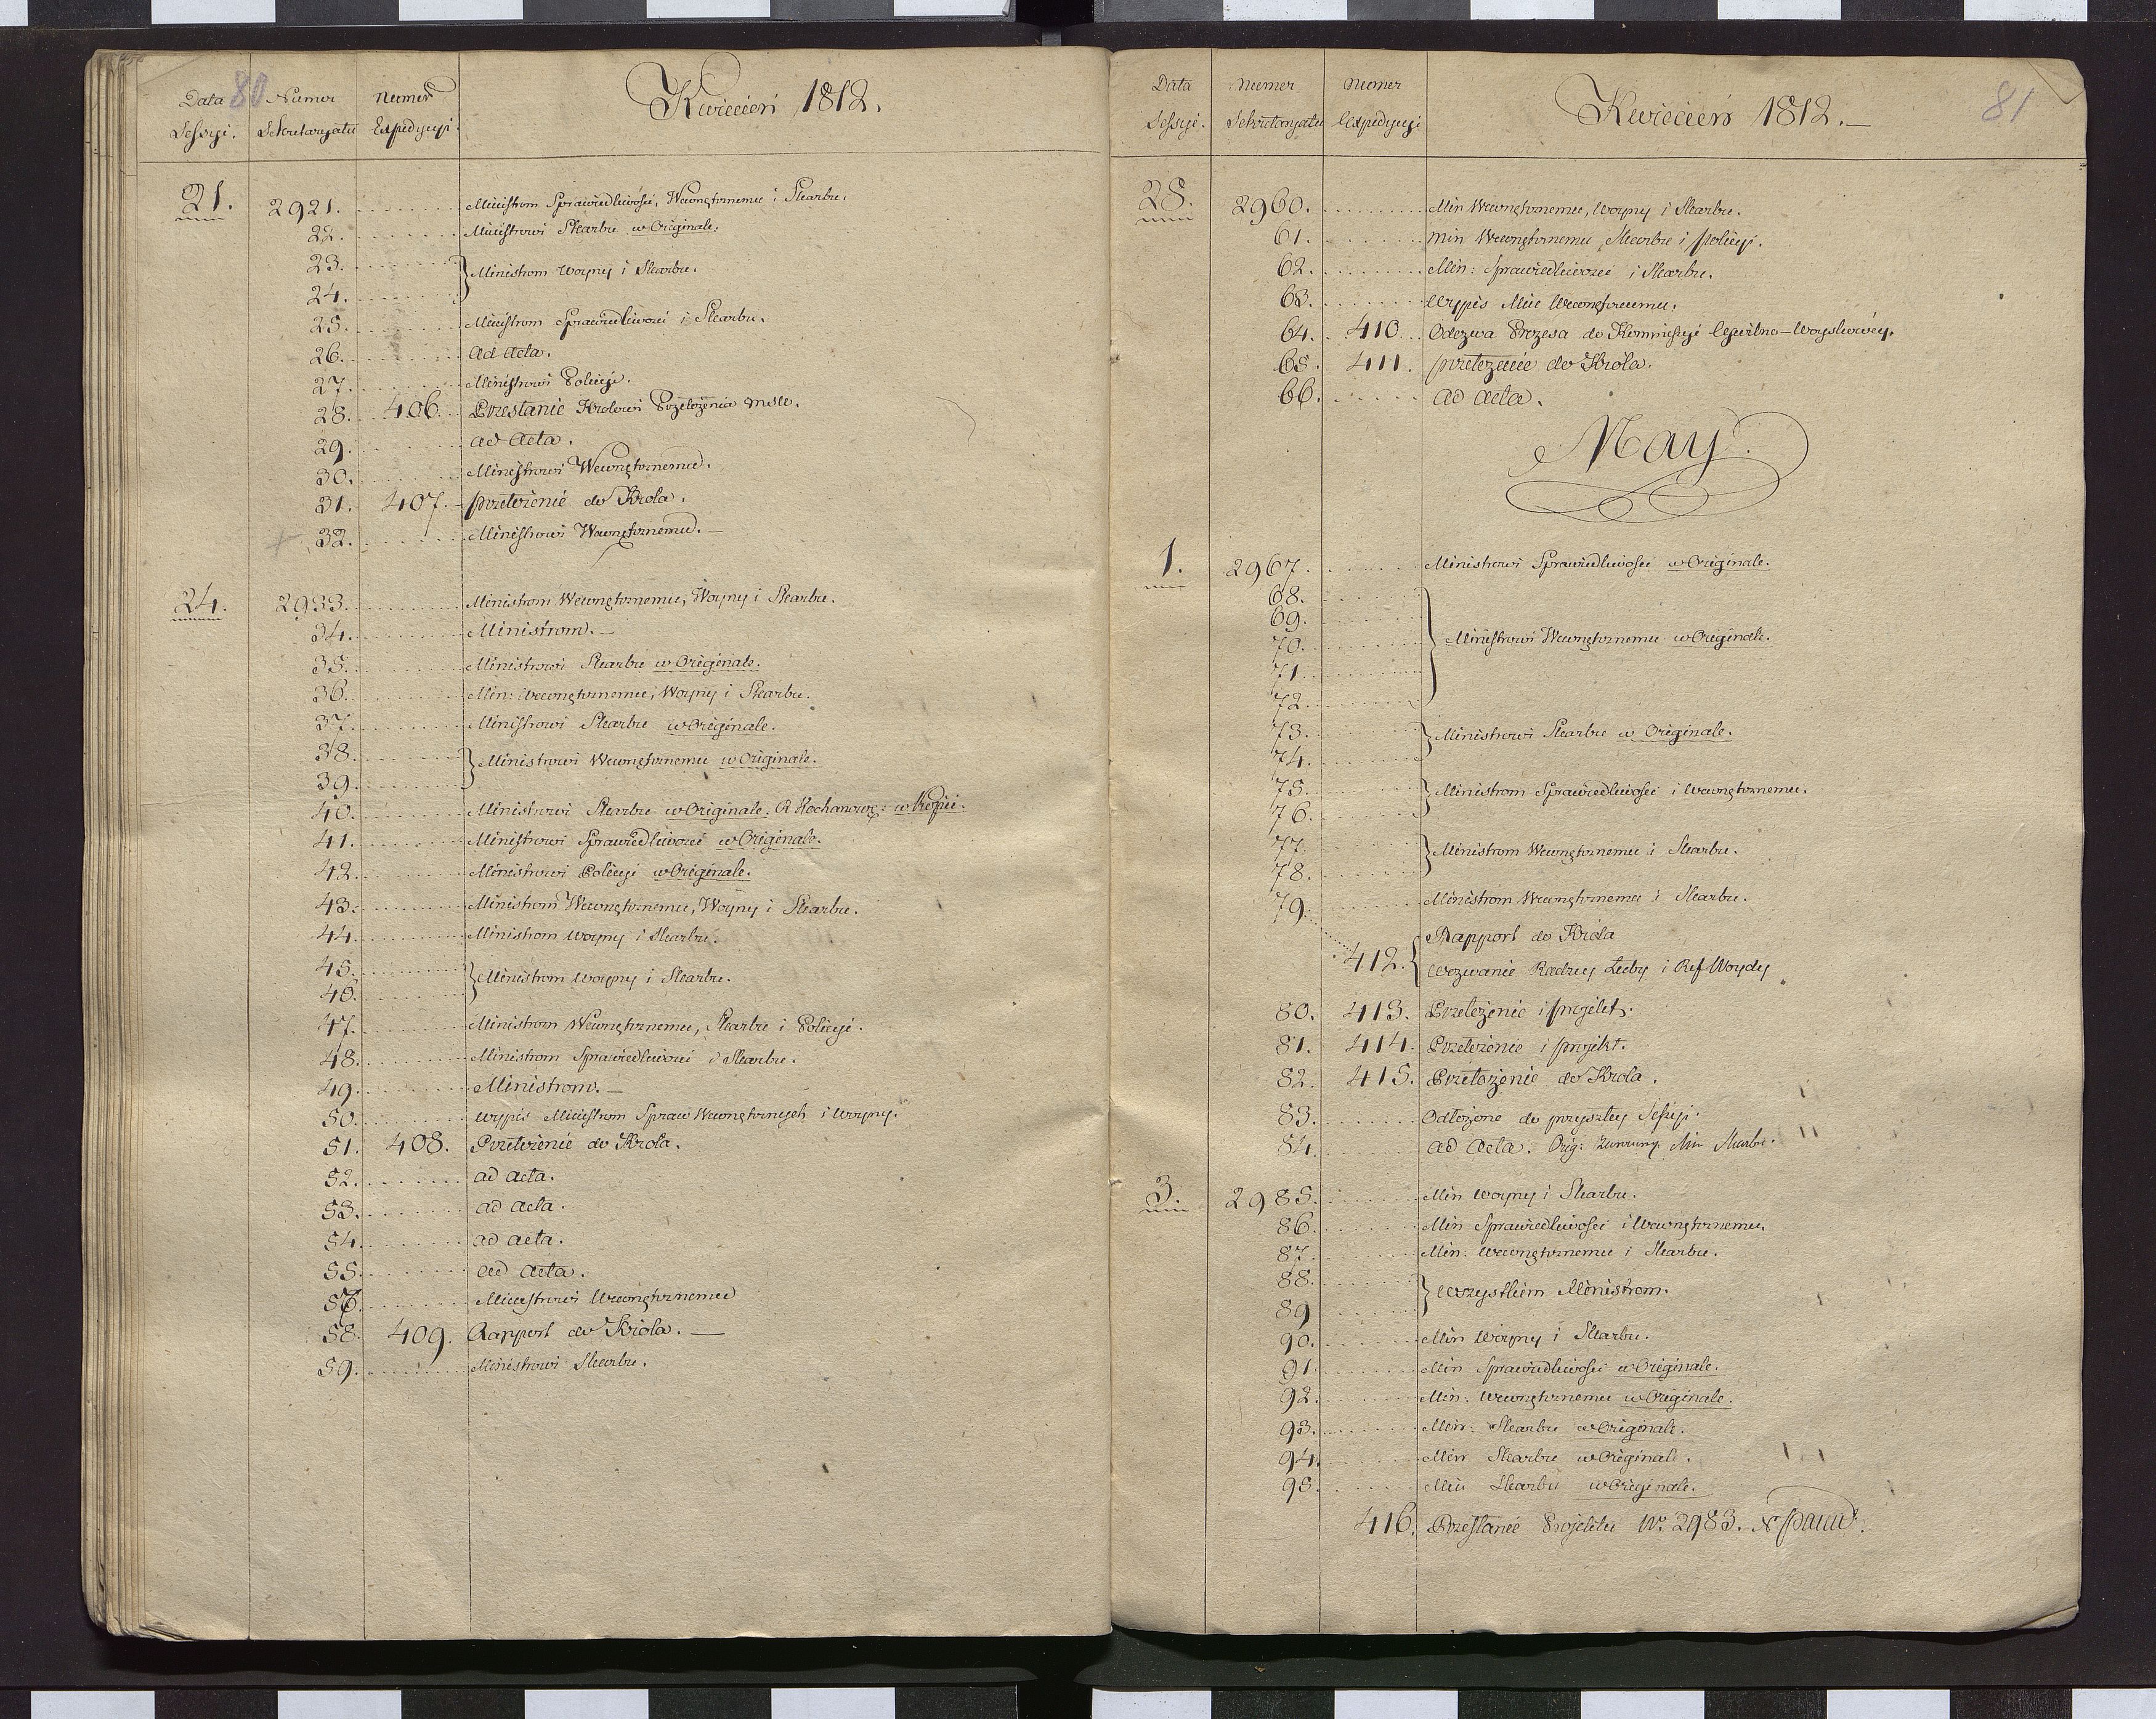 80
Data Numer Numer Kwiecień 1812.
Sessyi. Sekretaryatu Expedycyi.
21. 2921. Ministrom Sprawiedliwości, Wewnętrznemu i Skarbu.
22. Ministrowi Skarbu w Originale.
23. } Ministrom Woyny i Skarbu.
24.
25. Ministrom Sprawiedliwości i Skarbu.
26. ad Acta.
27. Ministrowi Policyi.
28. 406. Przesłanie Krolowi Przełożenia
29. ad Acta.
30. Ministrowi Wewnętrznemu.
31. 407. przełożenie do Krola.
+ 32. Ministrowi Wewnętrznemu. —
24. 2933. Ministrom Wewnętrznemu, Woyny i Skarbu.
34. Ministrom. —
35. Ministrowi Skarbu w Originale.
36. Min: Wewnętrznemu, Woyny i Skarbu.
37. Ministrowi Skarbu w Originale.
38. } Ministrowi Wewnętrznemu w Originale.
39.
40. Ministrowi Skarbu w Originale. R Kochanowsk: w Kopii.
41. Ministrowi Sprawiedliwości w Originale.
42. Ministrowi Policyi w Originale.
43. Ministrom Wewnętrznemu, Woyny i Skarbu.
44. Ministrom Woyny i Skarbu.
45. } Ministrom Woyny i Skarbu.
46.
47. Ministrom Wewnętrznemu, Skarbu i Policyi.
48. Ministrom Sprawiedliwości i Skarbu.
49. Ministrom. —
50. Wypis Ministrom Spraw Wewnętrznych i Woyny.
51. 408. Przełożenie do Krola.
52. ad acta.
53. ad acta.
54. ad acta.
55. ad acta.
56. Ministrowi Wewnętrznemu
58. 409. Rapport do Króla. —
59. Ministrowi Skarbu.
81
Data Numer Numer Kwiecień 1812. —
Sessyi. Sekretaryatu Expedycyi
28. 2960. Min Wewnętrznemu, Woyny i Skarbu.
61. Min Wewnętrznemu, Skarbu i policyi.
62. Min: Sprawiedliwości i Skarbu.
63. Wypis Min Wewnętrznemu.
64. 410. Odezwa Prezesa do Kommissyi Cywilno-Woyskowéy.
65. 411. przełożenie do Króla.
66. ad acta.
May.
1. 2967. Ministrowi Sprawiedliwości w Originale.
68.
69.
70. } Ministrowi Wewnętrznemu w Originale.
71.
72.
73. } Ministrowi Skarbu w Originale.
74.
75. } Ministrom Sprawiedliwości i Wewnętrznemu.
76.
77. } Ministrom Wewnętrznemu i Skarbu.
78.
79. Ministrom Wewnętrznemu i Skarbu.
412. { Rapport do Króla
Wezwanie Radzcy Łuby i Ref Woydy
80. 413. Przełożenie i projekt.
81. 414. Przełożenie i projekt.
82. 415. Przełożenie do Krola.
83. Odłożone do przyszłey Sessyi.
84. ad Acta. Orig: Min Skarbu.
3. 2985. Min Woyny i Skarbu.
86. Min Sprawiedliwości i Wewnętrznemu.
87. Min: Wewnętrznemu i Skarbu.
88. } Wszystkim Ministrom.
89
90. Min Woyny i Skarbu.
91. Min Sprawiedliwości w Originale.
92. Min: Wewnętrznemu w Originale.
93. Min: Skarbu w Originale.
94. Min Skarbu w Originale.
95. Min Skarbu w Originale.
416. Przesłanie Projektu Nr. 2983.